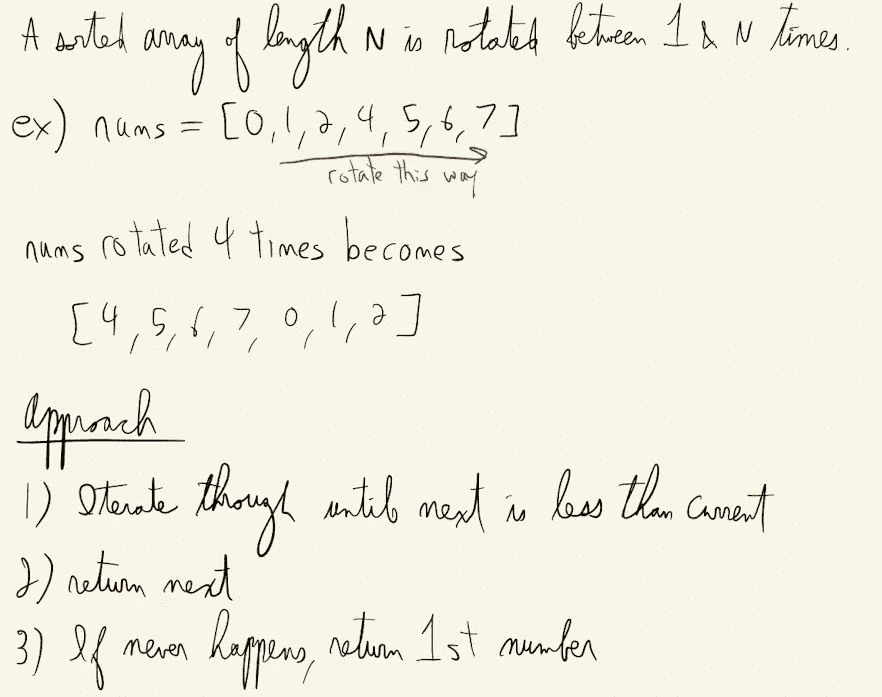 A sorted array of length N is rotated between 1 & N times.
ex) nums = [0,1,2,4,5,6,7]
rotate this way
nums rotated 4 times becomes
[4,5,6,7,0,1,2]
Approach
1) Iterate though until next is less than current
2) return next
3) If never happens, return 1st number